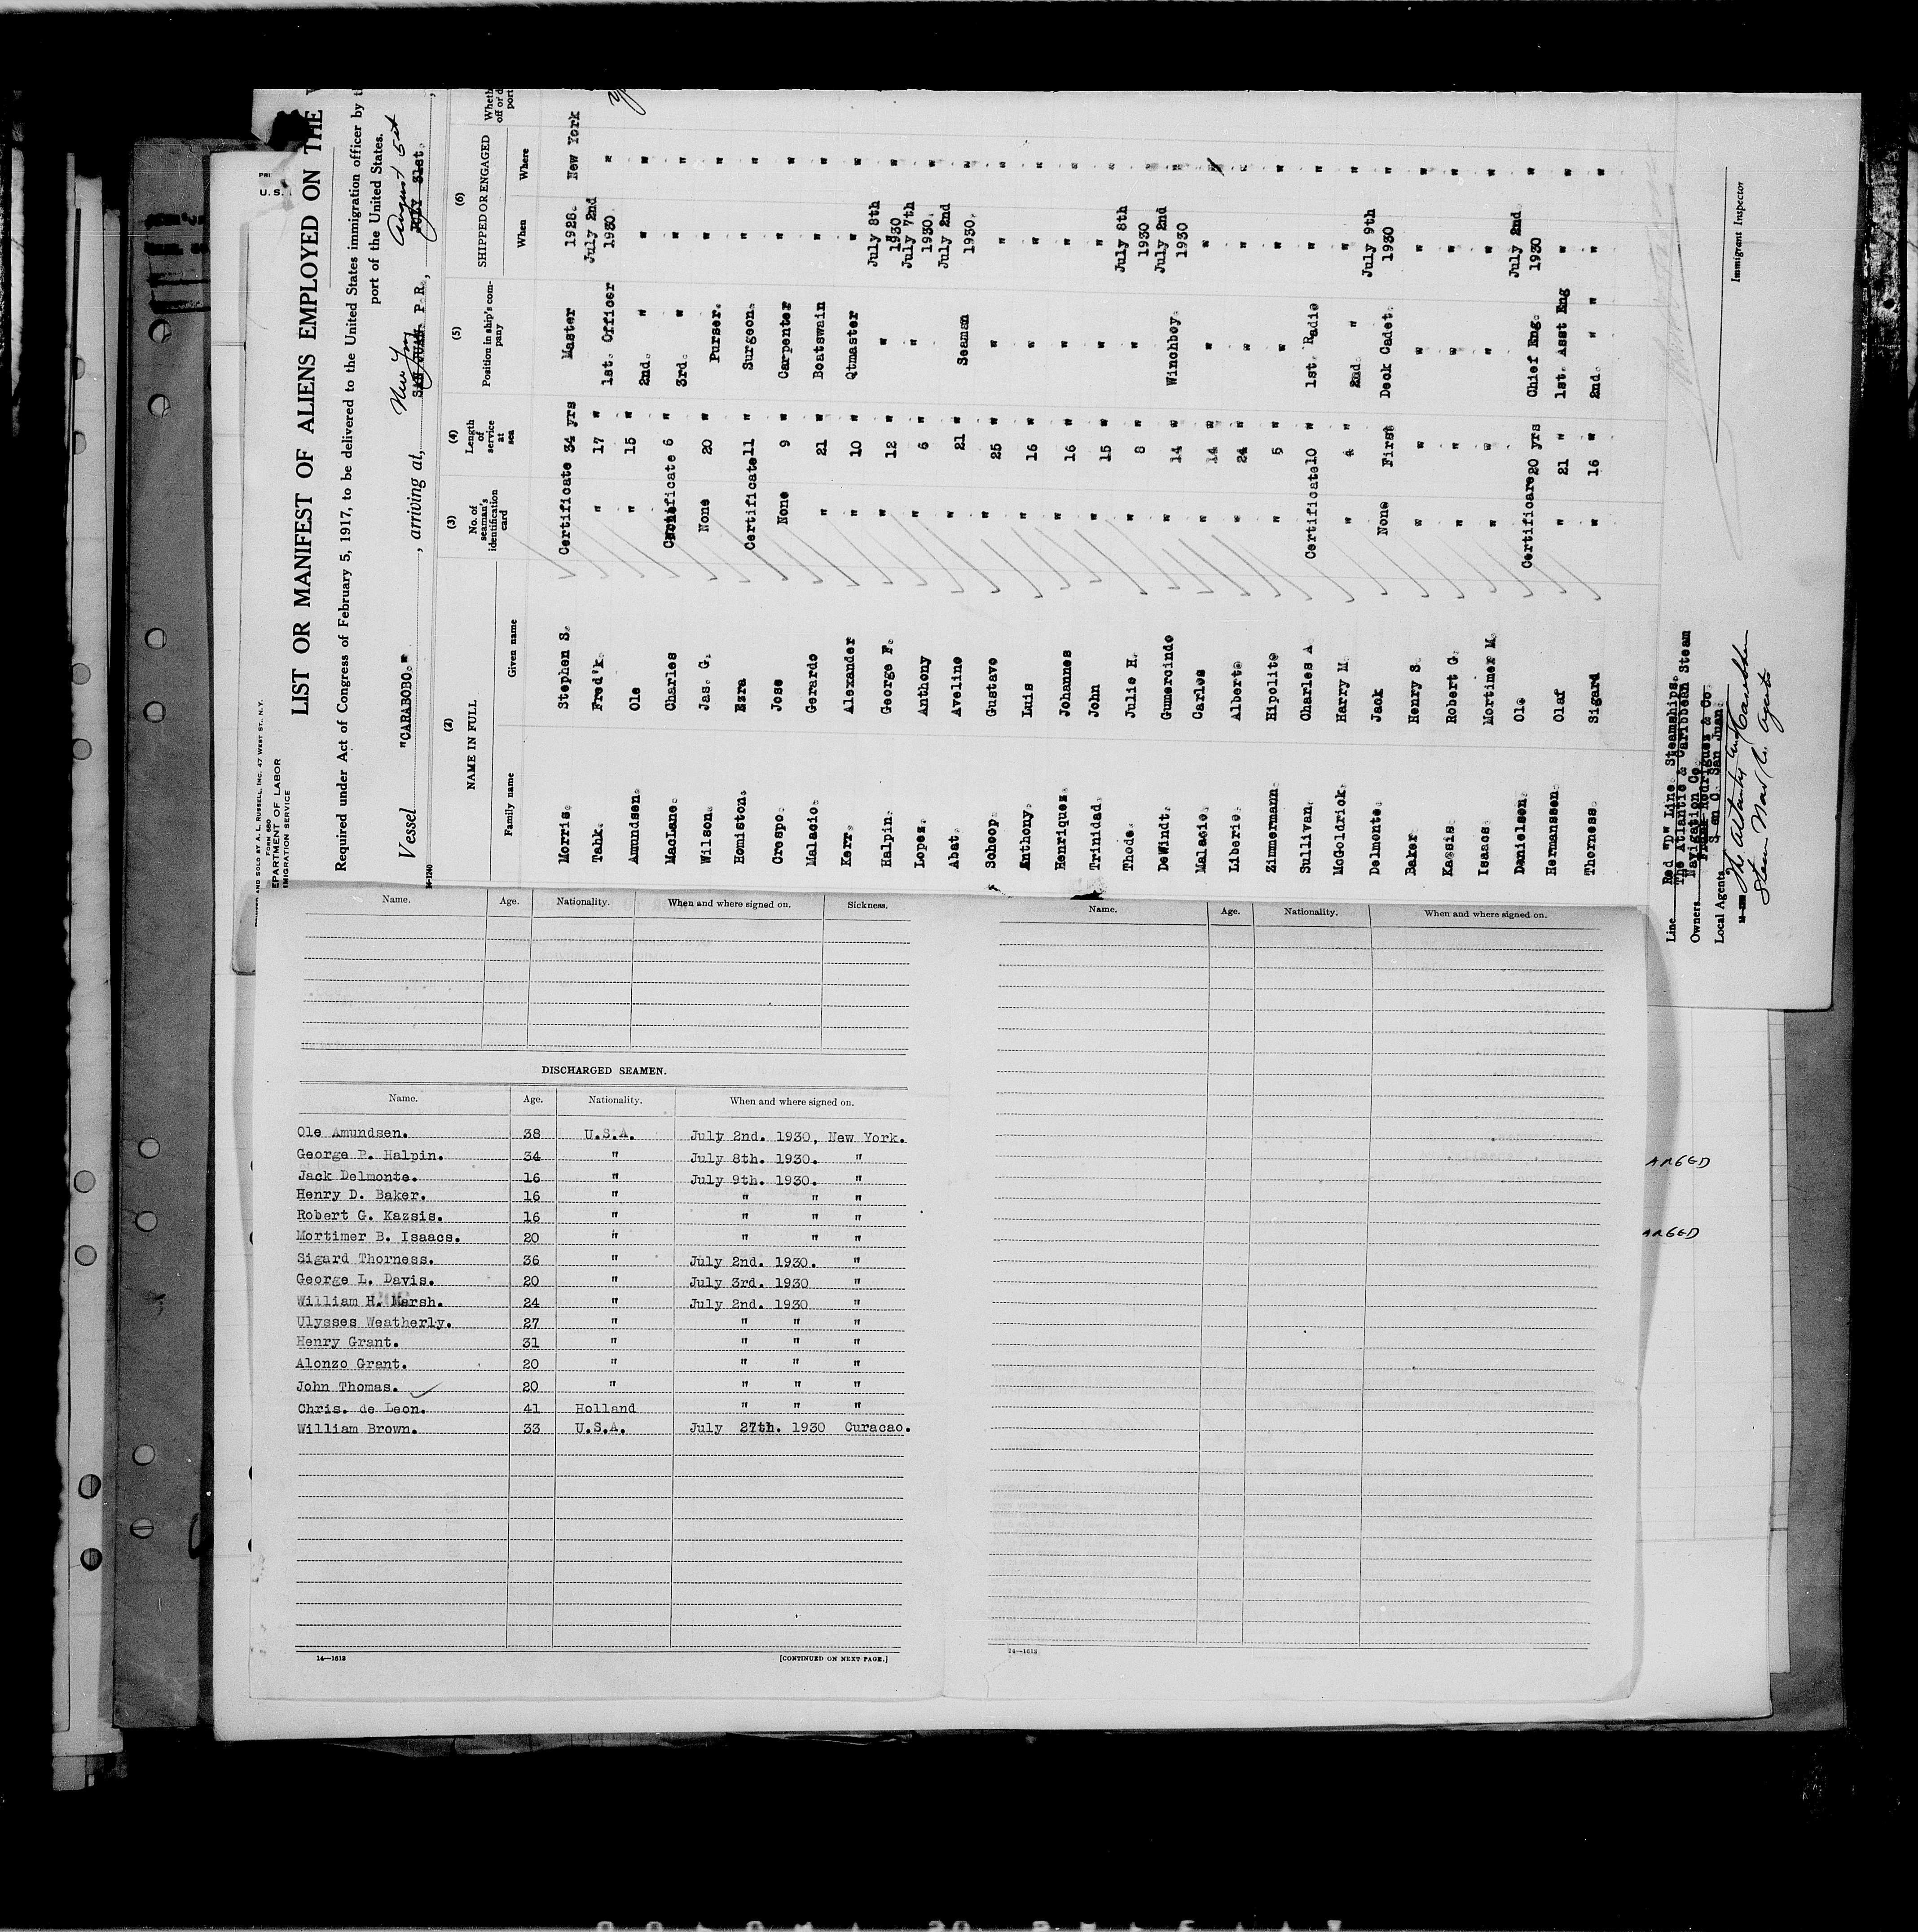 PRI
U. S. 
AND SOLD BY A. L. RUSSELL, INC. 47 WEST ST., N.Y.
FORM 680
EPARTMENT OF LABOR
IMIGRATION SERVICE
LIST OR MANIFEST OF ALIENS EMPLOYED ON THE
Required under Act of Congress of February 5, 1917, to be delivered to the United States immigration officer by t
port of the United States.
Vessel "CARABOBO." , arriving at, New York SAN JUAN. P.R., August 5th JULY 31st. ,
14-1240
(2) NAME IN FULL (3) No. of seaman's identification card (4) Length of service at sea (5) Position in ship's company (6) SHIPPED OR ENGAGED
Family name Given name When Where
Morris. Stephen S. Certificate 34 yrs Master 1928. New York
Tahk. Fred'k. " 17 " 1st. Officer July 2nd 1930 "
Amundsen. Ole " 15 " 2nd. " " "
MacLene. Charles Certificate 6 " 3rd. " " "
Wilson. Jas. G. None 20 " Purser. " "
Homiston. Ezra Certificate 11 " Surgeon. " "
Crespo. Jose None 9 " Carpenter " "
Malacio. Gerardo " 21 " Boatswain " "
Kerr. Alexander " 10 " Qtmaster " "
Halpin. George F. " 12 " " July 8th 1930 "
Lopez. Anthony " 6 " " July 7th 1930. "
Abat. Aveline " 21 " Seaman July 2nd 1930. "
Schoop. Gustavo " 25 " " " "
Anthony. Luis " 16 " " " "
Henriquez. Johannes " 16 " " " "
Trinidad. John " 15 " " " "
Thode. Julio H. " 8 " " July 8th 1930 "
DeWindt. Gumercindo " 14 " Winchboy. July 2nd 1930 "
Malacio. Carlos " 14 " " " "
Liberio. Alberto " 24 " " " "
Zimmermann. Hipolito " 5 " " " "
Sullivan. Charles A. Certificate 10 " 1st. Radio " "
McGoldrick. Harry M. " 4 " 2nd. " " "
Delmonte. Jack None First Deck Cadet. July 9th 1930 "
Baker. Henry S. " " " " "
Kassis. Robert G. " " " " "
Isaacs. Mortimer M. " " " " "
Danielsen. Ole Certificare 20 yrs Chief Eng. July 2nd 1930 "
Hermanssen. Olaf " 21 " 1st. Asst Eng " "
Thorness. Sigard " 16 " 2nd. " " " "
Line Red "D" Line Steamships.
Owners The Atlantic & Caribbean Steam Navigation Co.
Local Agents Rodriguez & Co. San Juan.
The Atlantic and Caribbean
Steam Nav Co. Agents
Immigrant Inspector
Name. Age. Nationality. When and where signed on. Sickness.
DISCHARGED SEAMEN.
Name. Age. Nationality. When and where signed on.
Ole Amundsen. 38 U.S.A. July 2nd. 1930, New York.
George P. Halpin. 34 " July 8th. 1930. "
Jack Delmonte. 16 " July 9th. 1930. "
Henry D. Baker. 16 " " " "
Robert G. Kazsis. 16 " " " "
Mortimer B. Isaacs. 20 " " " "
Sigard Thorness. 36 " July 2nd. 1930. "
George L. Davis. 20 " July 3rd. 1930 "
William H. Marsh. 24 " July 2nd. 1930 "
Ulysses Weatherly. 27 " " " "
Henry Grant. 31 " " " "
Alonzo Grant. 20 " " " "
John Thomas. 20 " " " "
Chris. de Leon. 41 Holland " " "
William Brown. 33 U.S.A. July 27th. 1930 Curacao.
14—1612
[CONTINUED ON NEXT PAGE.]
Name. Age. Nationality. When and where signed on.
14—1612
ARGED
ARGED